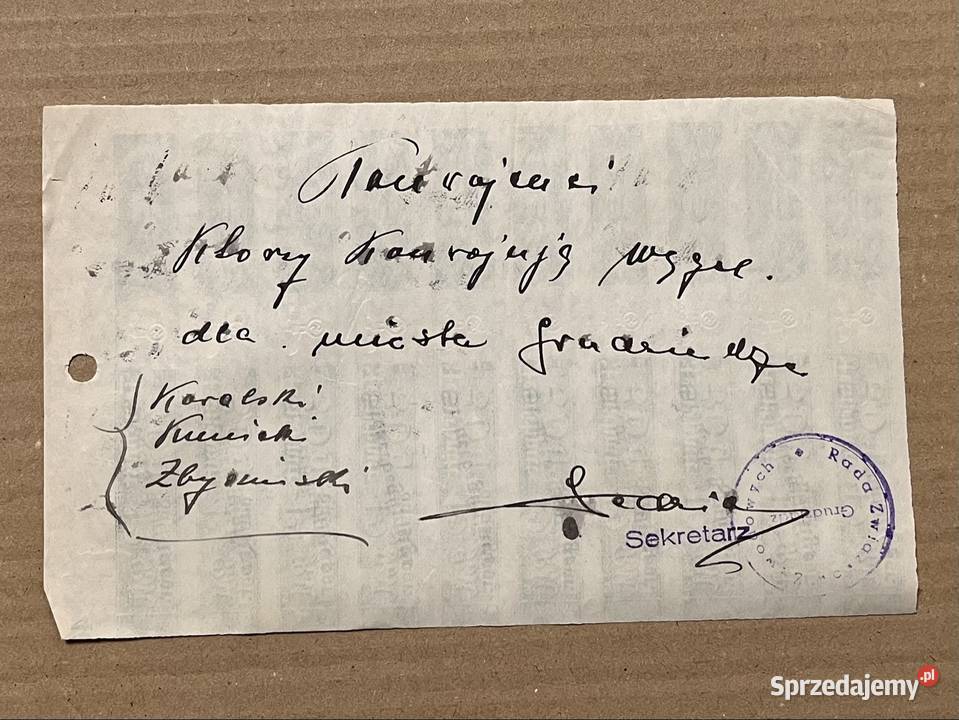 Konwojenci
Którzy Konwojują węgiel.
dla miasta Grudziądza
Kowalski
Kunicki
Zbyginiski
Sekretarz
Rada Związków Zawodowych
Grudziądz
Sprzedajemy.pl